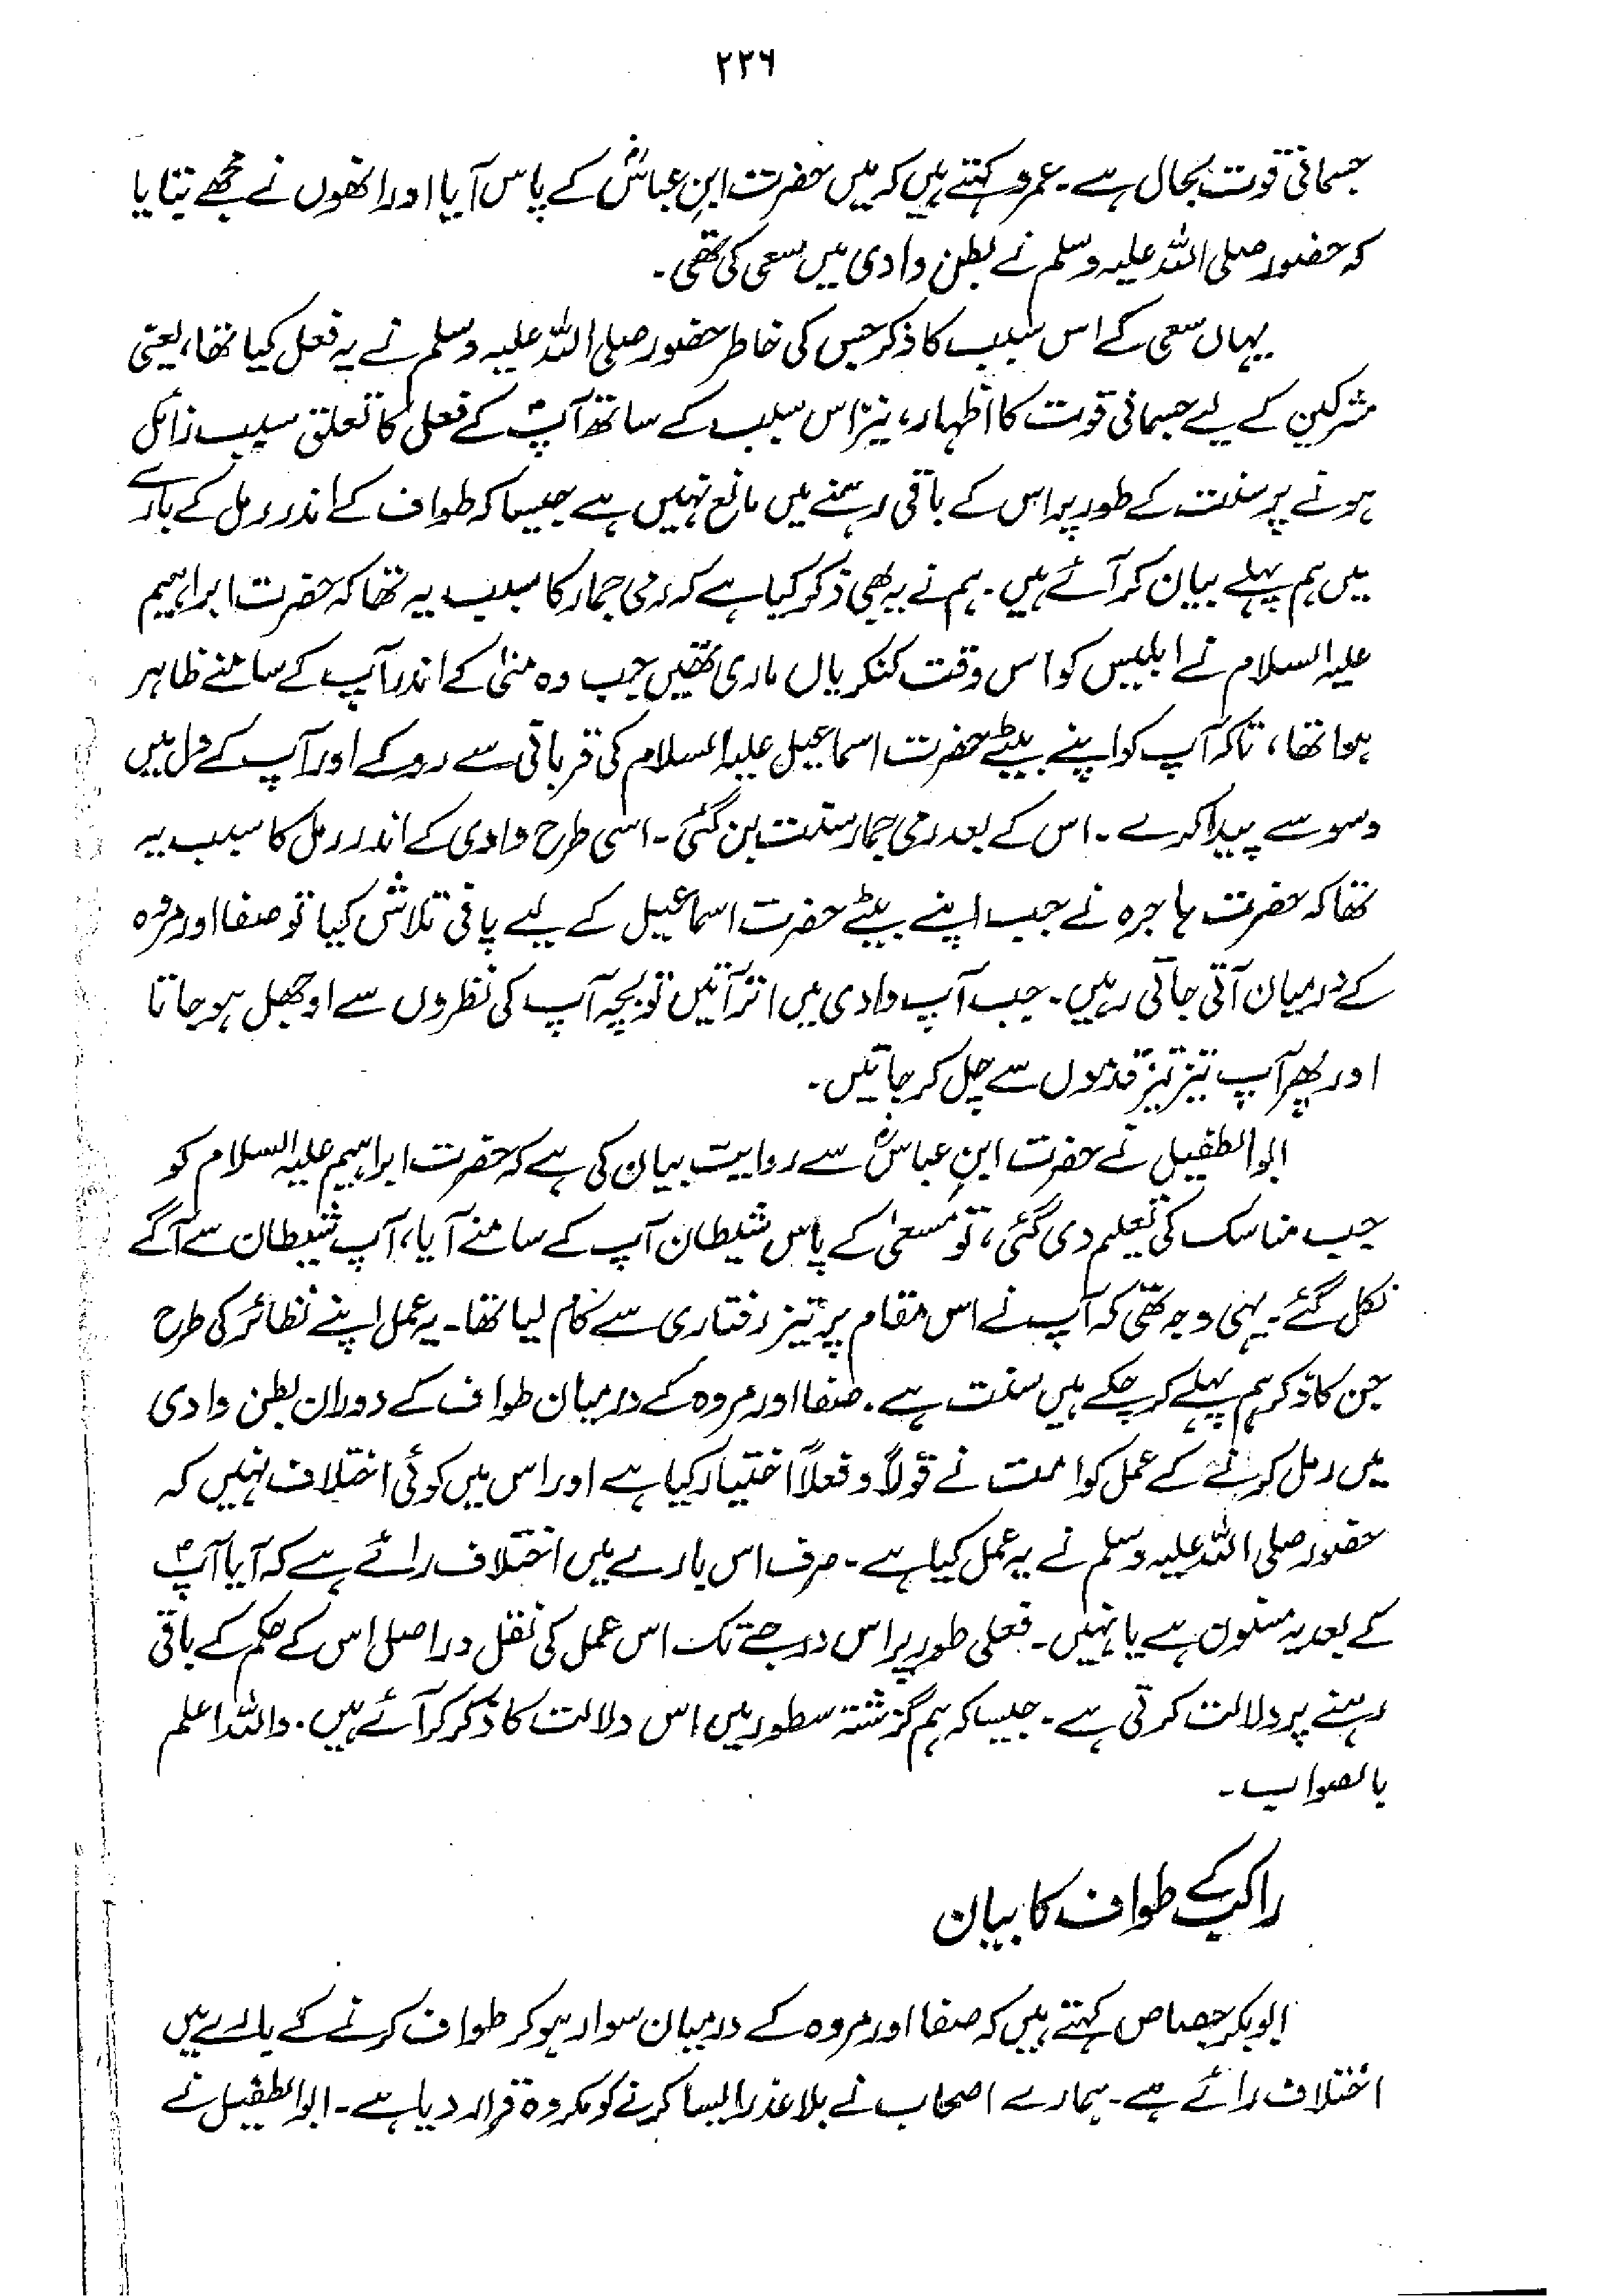 ۲۳۶
جسمانی قوت بحال ہے۔ عمرو کہتے ہیں کہ میں حضرت ابنِ عباسؓ کے پاس آیا اور انھوں نے مجھے بتایا
کہ حضور صلی اللہ علیہ وسلم نے بطن وادی میں سعی کی تھی۔
یہاں سعی کے اس سبب کا ذکر جس کی خاطر حضور صلی اللہ علیہ وسلم نے یہ فعل کیا تھا، یعنی
مشرکین کے لیے جسمانی قوت کا اظہار، نیز اس سبب کے ساتھ آپؐ کے فعل کا تعلق سبب زائل
ہونے پر سنت کے طور پر اس کے باقی رہنے میں مانع نہیں ہے جیسا کہ طواف کے اندر رمل کے بارے
میں ہم پہلے بیان کر آئے ہیں۔ ہم نے یہ بھی ذکر کیا ہے کہ رمی جمار کا سبب یہ تھا کہ حضرت ابراہیم
علیہ السلام نے ابلیس کو اس وقت کنکریاں ماری تھیں جب وہ منیٰ کے اندر آپ کے سامنے ظاہر
ہوا تھا، تاکہ آپ کو اپنے بیٹے حضرت اسماعیل علیہ السلام کی قربانی سے روکے اور آپ کے دل میں
وسوسے پیدا کرے۔ اس کے بعد رمی جمار سنت بن گئی۔ اسی طرح وادی کے اندر رمل کا سبب یہ
تھا کہ حضرت ہاجرہ نے جب اپنے بیٹے حضرت اسماعیل کے لیے پانی تلاش کیا تو صفا اور مروہ
کے درمیان آتی جاتی رہیں۔ جب آپ وادی میں اتر آتیں تو بچہ آپ کی نظروں سے اوجھل ہو جاتا
اور پھر آپ تیز تیز قدموں سے چل کر جاتیں۔
ابوالطفیل نے حضرت ابنِ عباسؓ سے روایت بیان کی ہے کہ حضرت ابراہیم علیہ السلام کو
جب مناسک کی تعلیم دی گئی، تو مَسعیٰ کے پاس شیطان آپ کے سامنے آیا، آپ شیطان سے آگے
نکل گئے۔ یہی وجہ تھی کہ آپ نے اس مقام پر تیز رفتاری سے کام لیا تھا۔ یہ عمل اپنے نظائر کی طرح
جن کا ذکر ہم پہلے کر چکے ہیں سنت ہے۔ صفا اور مروہ کے درمیان طواف کے دوران بطن وادی
میں رمل کرنے کے عمل کو امت نے قولاً و فعلاً اختیار کیا ہے اور اس میں کوئی اختلاف نہیں کہ
حضور صلی اللہ علیہ وسلم نے یہ عمل کیا ہے۔ صرف اس بارے میں اختلاف رائے ہے کہ آیا آپؐ
کے بعد یہ مسنون ہے یا نہیں۔ فعلی طور پر اس درجے تک اس عمل کی نقل دراصل اس کے حکم کے باقی
رہنے پر دلالت کرتی ہے۔ جیسا کہ ہم گزشتہ سطور میں اس دلالت کا ذکر کر آئے ہیں۔ واللہ اعلم
بالصواب۔
راکب کے طواف کا بیان
ابوبکر جصاص کہتے ہیں کہ صفا اور مروہ کے درمیان سوار ہو کر طواف کرنے کے بارے میں
اختلاف رائے ہے۔ ہمارے اصحاب نے بلا عذر ایسا کرنے کو مکروہ قرار دیا ہے۔ ابوالطفیل نے